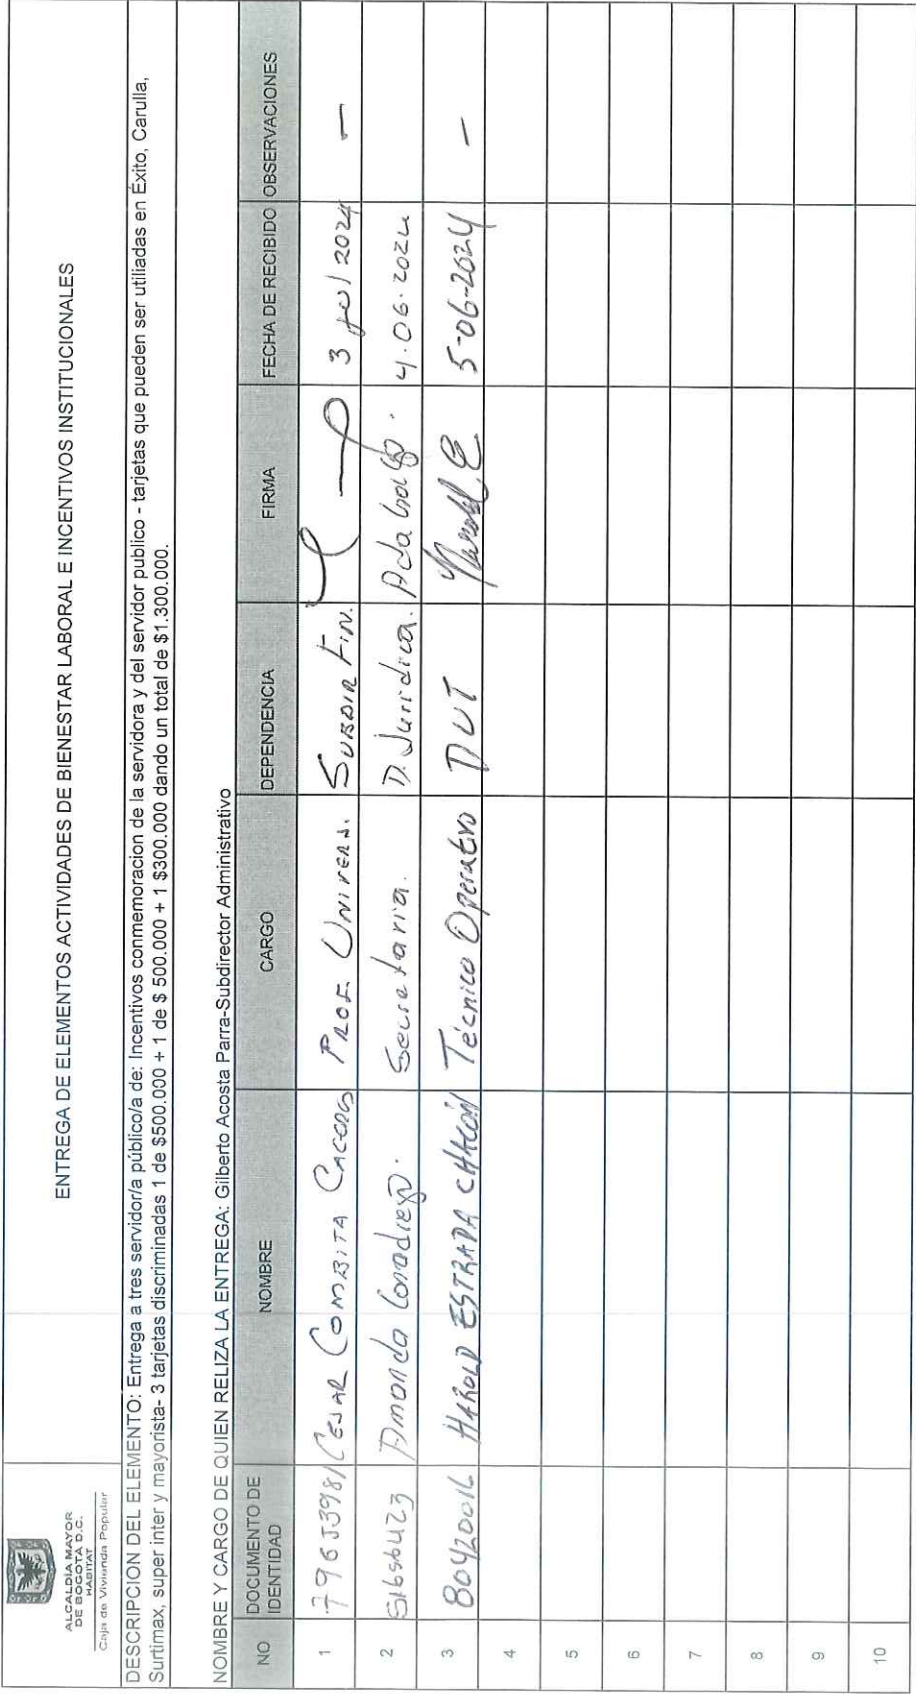 ALCALDÍA MAYOR
DE BOGOTÁ D.C.
HÁBITAT
Caja de Vivienda Popular
ENTREGA DE ELEMENTOS ACTIVIDADES DE BIENESTAR LABORAL E INCENTIVOS INSTITUCIONALES
DESCRIPCION DEL ELEMENTO: Entrega a tres servidor/a público/a de: Incentivos conmemoracion de la servidora y del servidor publico - tarjetas que pueden ser utiliadas en Éxito, Carulla,
Surtimax, super inter y mayorista- 3 tarjetas discriminadas 1 de $500.000 + 1 de $ 500.000 + 1 $300.000 dando un total de $1.300.000.
NOMBRE Y CARGO DE QUIEN RELIZA LA ENTREGA: Gilberto Acosta Parra-Subdirector Administrativo
NO DOCUMENTO DE IDENTIDAD NOMBRE CARGO DEPENDENCIA FIRMA FECHA DE RECIBIDO OBSERVACIONES
1 79653981 CESAR COMBITA PROF. UNIVERS. SUBDIR FIN. 3 jul 2024 —
2 Amanda Secretaria. D. Jurídica. 4.06.2024
3 80420016 HAROLD ESTRADA CHACÓN Técnico Operativo DUT Harold E 5-06-2024 —
4
5
6
7
8
9
10